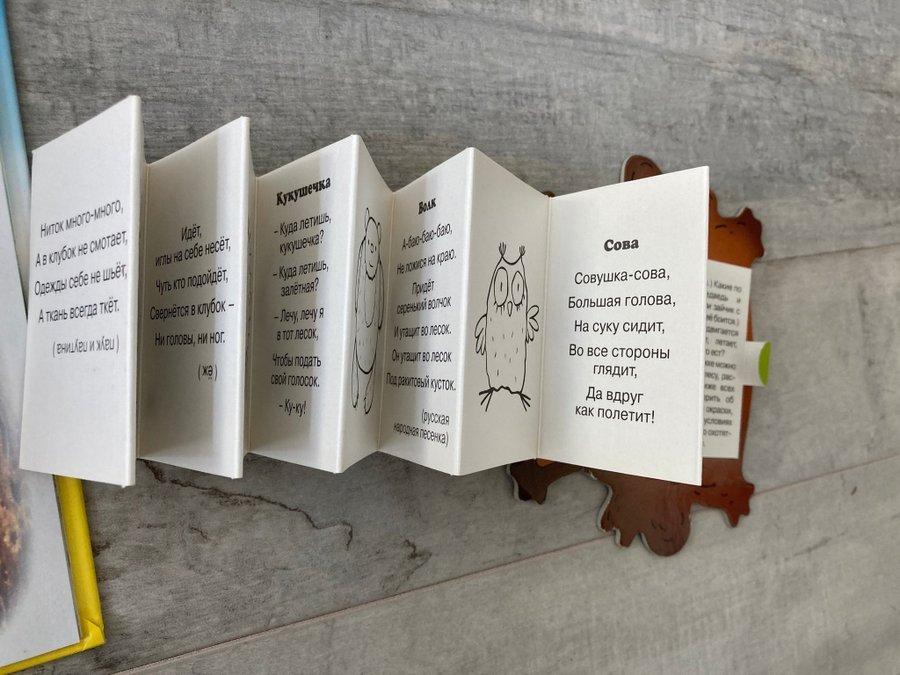 Ниток много-много,
А в клубок не смотает,
Одежды себе не шьёт,
А ткань всегда ткёт.
(паук и паутина)
Идёт,
иглы на себе несёт,
Чуть кто подойдёт,
Свернётся в клубок –
Ни головы, ни ног.
(ёж)
Кукушечка
– Куда летишь,
кукушечка?
– Куда летишь,
залётная?
– Лечу, лечу я
в тот лесок,
Чтобы подать
свой голосок.
– Ку-ку!
Волк
А-баю-баю-баю,
Не ложися на краю.
Придёт
серенький волчок
И утащит во лесок.
Он утащит во лесок
Под ракитовый кусток.
(русская
народная песенка)
Сова
Совушка-сова,
Большая голова,
На суку сидит,
Во все стороны
глядит,
Да вдруг
как полетит!
.) Какие по
и зайчик с
боится.)
двигается
летает,
ест?
можно
лесу, рас-
же всех
орить об
окраски,
условиях
охотят-